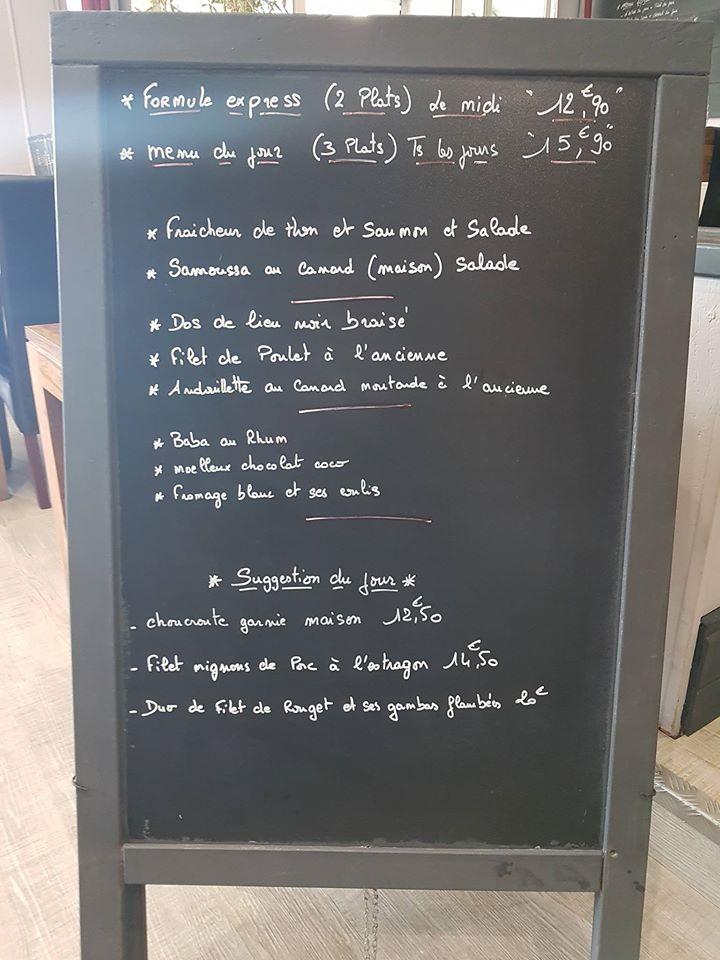 * Formule express (2 Plats) Le midi "12,€90"
* menu du jour (3 Plats) Ts les jours "15,€90"
* Fraicheur de thon et Saumon et Salade
* Samoussa au Canard (maison) Salade
* Dos de lieu noir braisé
* Filet de Poulet à l'ancienne
* Andouillette au Canard moutarde à l'ancienne
* Baba au Rhum
* moelleux chocolat coco
* Fromage blanc et ses coulis
* Suggestion du jour *
- choucroute garnie maison 12,€50
- Filet mignons de Porc à l'estragon 14,€50
- Duo de Filet de Rouget et ses gambas flambées 20€